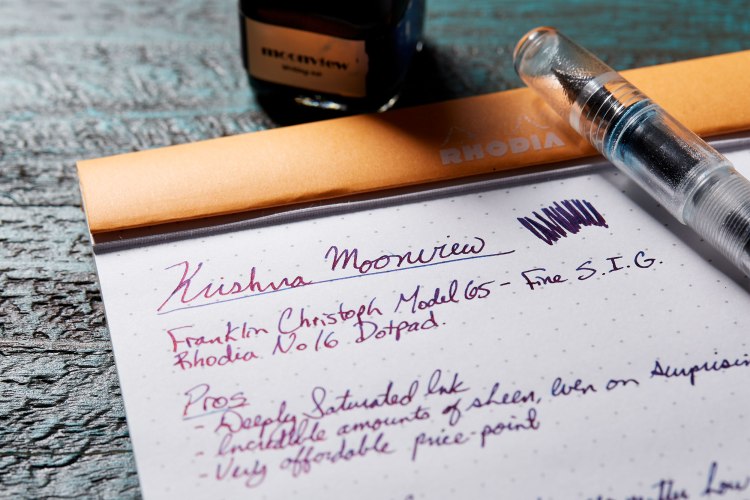 moonview
writing ink
RHODIA
Krishna Moonview
Franklin Christoph Model 65 - Fine S.I.G.
Rhodia No16 Dotpad.
Pros
- Deeply Saturated Ink
- Incredible amounts of sheen, even on surprisin
- Very affordable price-point
the low